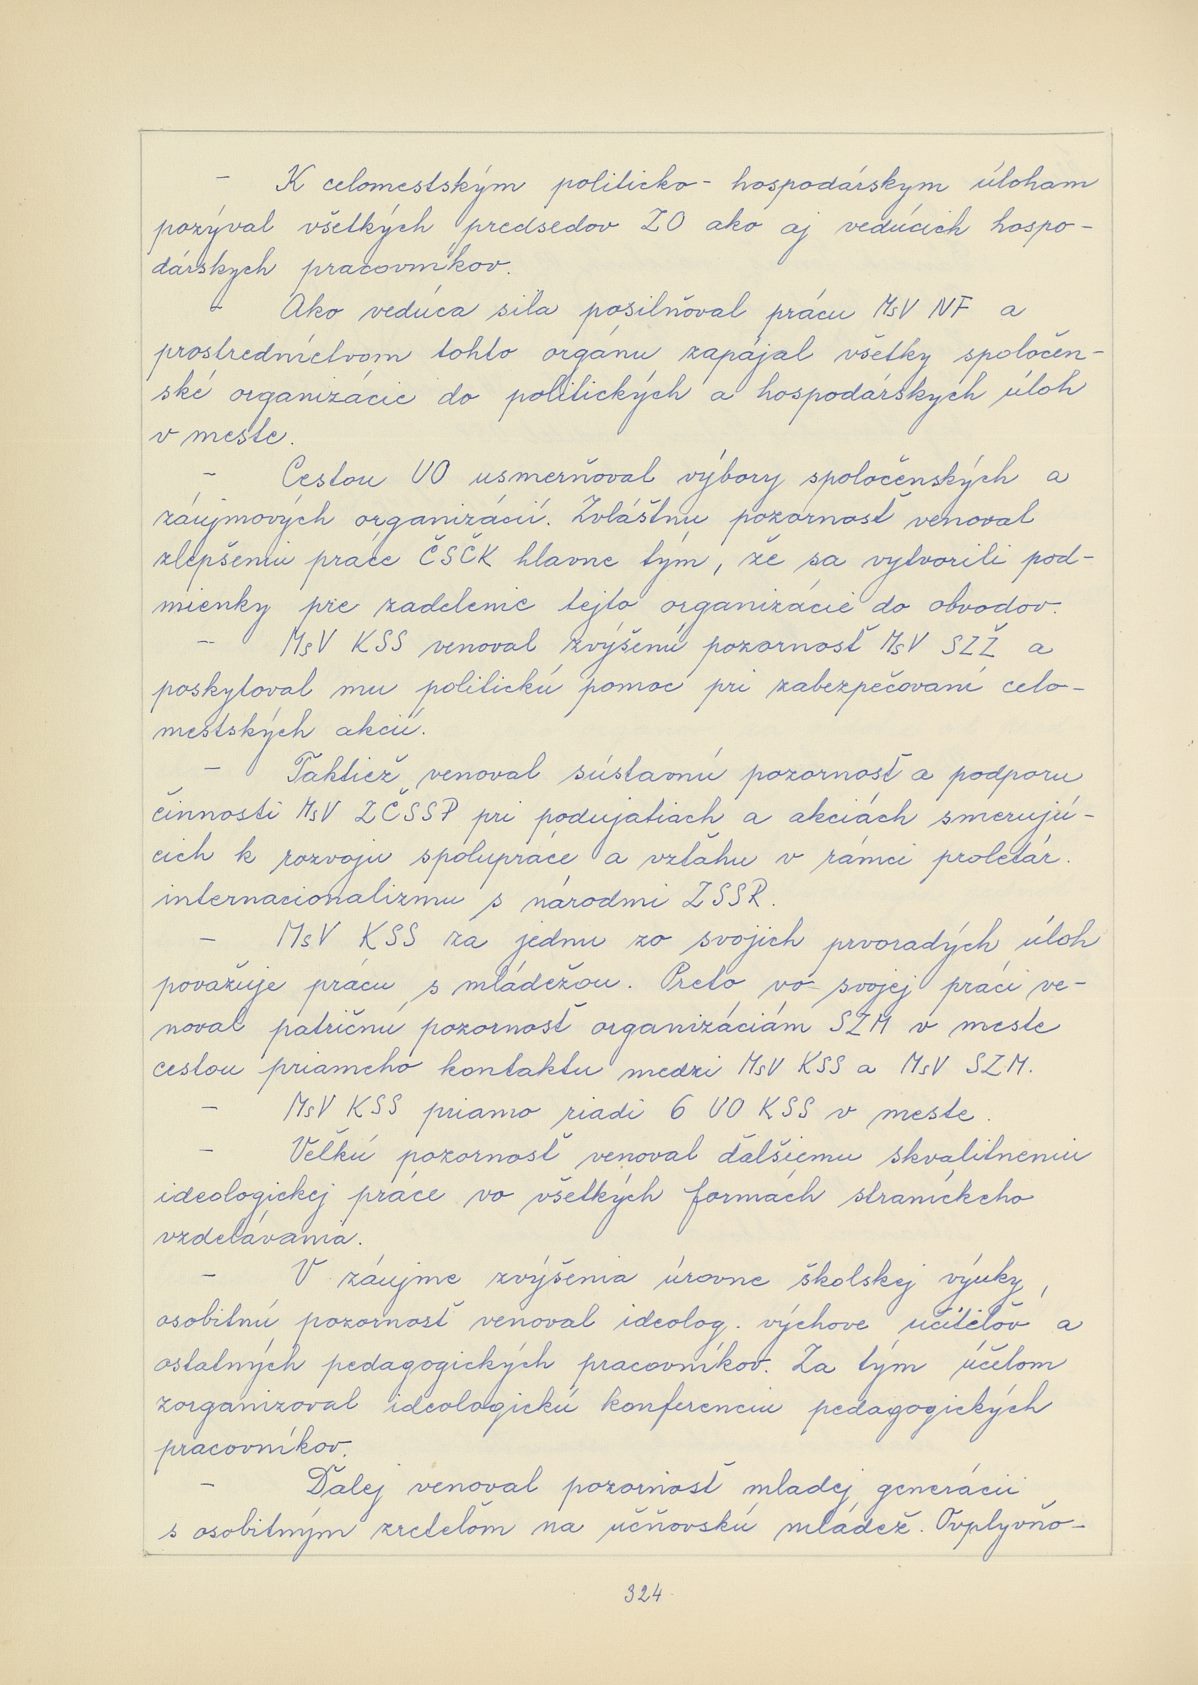 - K celomestským politicko-hospodárskym úloham
pozýval všetkých predsedov ZO ako aj vedúcich hospo-
dárskych pracovníkov.
- Ako vedúca sila posilňoval prácu MsV NF a
prostredníctvom tohto orgánu zapájal všetky spoločen-
ské organizácie do politických a hospodárskych úloh
v meste.
- Cestou UO usmerňoval výbory spoločenských a
záujmových organizácií. Zvláštnu pozornosť venoval
zlepšeniu práce ČSČK hlavne tým, že sa vytvorili pod-
mienky pre zadelenie tejto organizácie do obvodov.
- MsV KSS venoval zvýšenú pozornosť MsV SZŽ a
poskytoval mu politickú pomoc pri zabezpečovaní celo-
mestských akcií.
- Taktiež venoval sústavnú pozornosť a podporu
činnosti MsV ZČSSP pri podujatiach a akciách smerujú-
cich k rozvoju spolupráce a vzťahu v rámci proletár.
internacionalizmu s národmi ZSSR.
- MsV KSS za jednu zo svojich prvoradých úloh
považuje prácu s mládežou. Preto vo svojej práci ve-
noval patričnú pozornosť organizáciám SZM v meste
cestou priameho kontaktu medzi MsV KSS a MsV SZM.
- MsV KSS priamo riadi 6 UO KSS v meste.
- Veľkú pozornosť venoval ďalšiemu skvalitneniu
ideologickej práce vo všetkých formách straníckeho
vzdelávania.
- V záujme zvýšenia úrovne školskej výuky,
osobitnú pozornosť venoval ideolog. výchove učiteľov a
ostatných pedagogických pracovníkov. Za tým účelom
zorganizoval ideologickú konferenciu pedagogických
pracovníkov.
- Ďalej venoval pozornosť mladej generácii
s osobitným zreteľom na učňovskú mládež. Ovplyvňo-
324